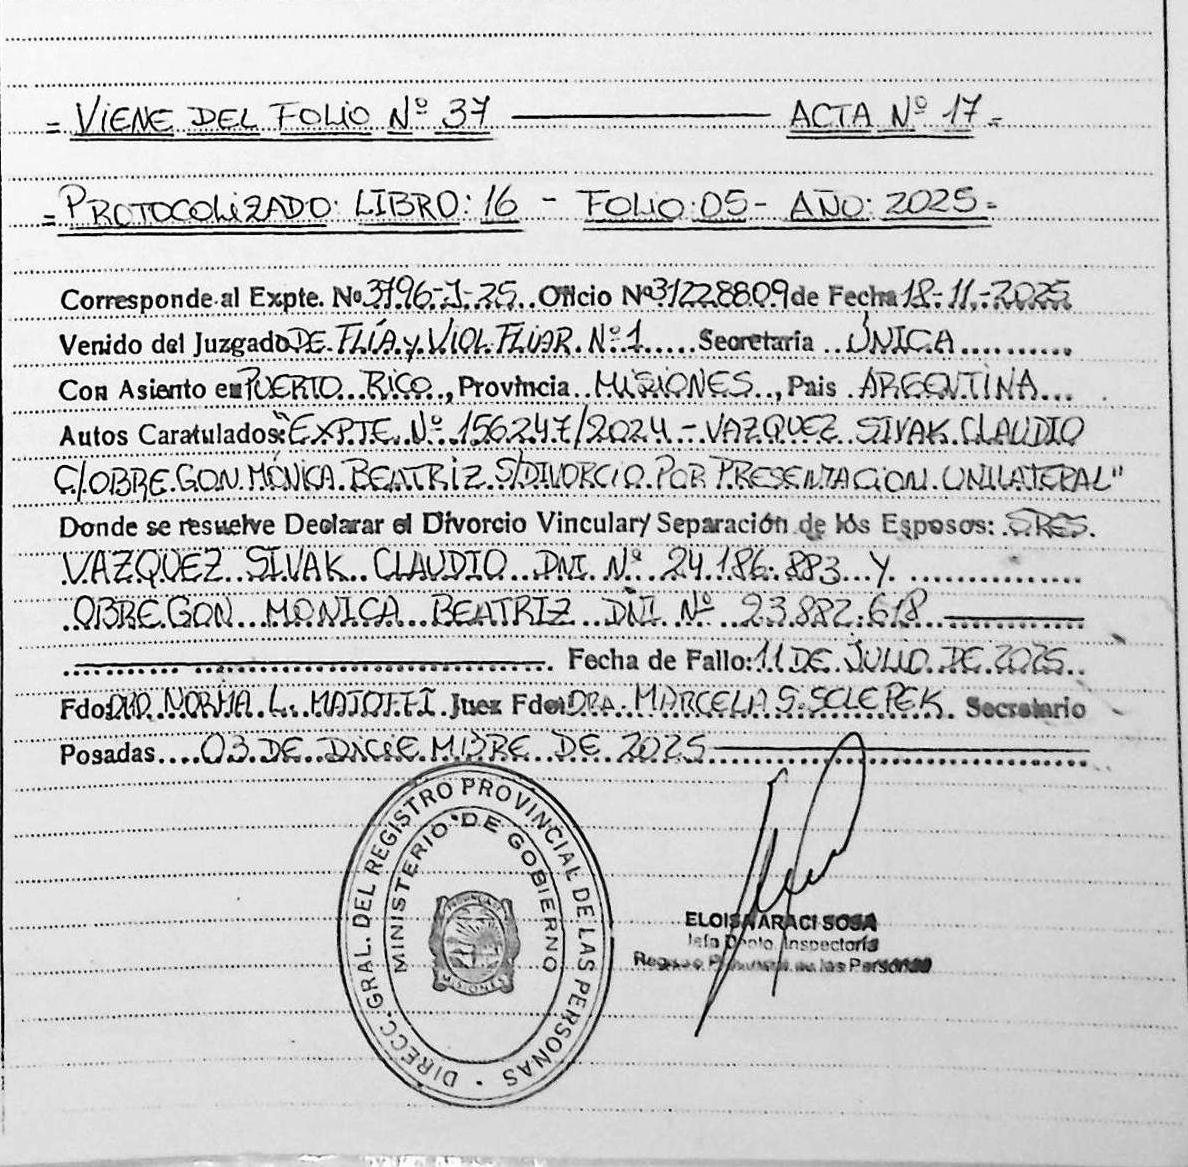 = VIENE DEL FOLIO Nº 37 ——— ACTA Nº 17 =
= PROTOCOLIZADO: LIBRO: 16 - FOLIO: 05 - AÑO: 2025 =
Corresponde al Expte. Nº 3796-J-25.. Oficio Nº 31228809 de Fecha 18-11-2025
Venido del Juzgado DE FLÍA. y VIOL. FLIAR. Nº 1..... Secretaria ..ÚNICA..........
Con Asiento en PUERTO RICO, Provincia MISIONES, Pais ARGENTINA...
Autos Caratulados: "EXPTE. Nº 156247/2024 - VAZQUEZ SIVAK CLAUDIO
C/OBREGON MÓNICA BEATRIZ S/DIVORCIO POR PRESENTACION UNILATERAL"
Donde se resuelve Declarar el Divorcio Vincular y Separación de los Esposos: SRES.
VAZQUEZ SIVAK CLAUDIO DNI Nº 24.186.883 Y
OBREGON MONICA BEATRIZ DNI Nº 23.882.618
Fecha de Fallo: 11 DE JULIO DE 2025
Fdo: NORMA L. Juez Fdo: DRA. MARCELA S. SCLEPEK. Secretario
Posadas....03 DE DICIEMBRE DE 2025
DIRECC. GRAL. DEL REGISTRO PROVINCIAL DE LAS PERSONAS
MINISTERIO DE GOBIERNO
MISIONES
ELOISA ARACI SOSA
Jefa Dpto. Inspectoría
Registro Provincial de las Personas